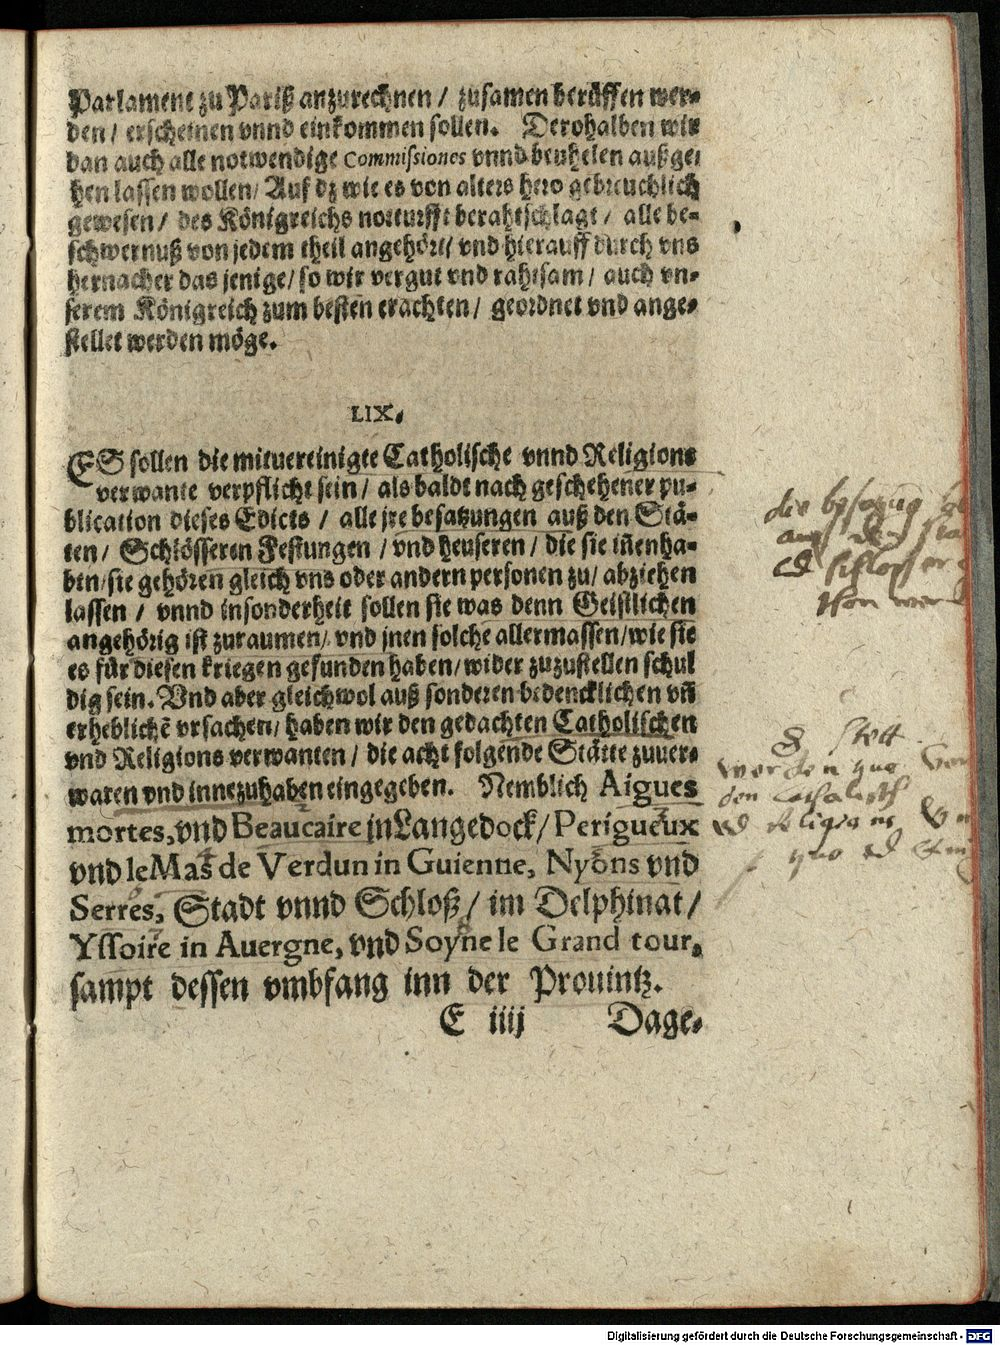 Parlament zu Pariß anzurechnen / zusamen berůffen wer-
den / erscheinen vnnd einkommen sollen. Derohalben wir
dan auch alle notwendige Commissiones vnnd beuhelen außge-
hen lassen wollen / Auf dz wie es von alters hero gebreuchlich
gewesen / des Königreichs notturfft berahtschlagt / alle be-
schwernuß von jedem theil angehört / vnd hierauff durch vns
hernacher das jenige / so wir vergut vnd rahtsam / auch vn-
serem Königreich zum besten erachten / geordnet vnd ange-
stellet werden möge.
LIX.
ES sollen die mituereinigte Catholische vnnd Religions
verwante verpflicht sein / als baldt nach geschehener pu-
blication dieses Edicts / alle jre besatzungen auß den Stä-
ten / Schlösseren Festungen / vnd heuseren / die sie iñenha-
ben / sie gehören gleich vns oder andern personen zu / abziehen
lassen / vnnd insonderheit sollen sie was denn Geistlichen
angehörig ist zuraumen / vnd jnen solche allermassen / wie sie
es für diesen kriegen gefunden haben / wider zuzustellen schul
dig sein. Vnd aber gleichwol auß sonderen bedencklichen vñ
erheblichē vrsachen / haben wir den gedachten Catholischen
vnd Religions verwanten / die acht folgende Stätte zuuer-
waren vnd innezuhaben eingegeben. Nemblich Aigues
mortes, vnd Beaucaire in Langedock / Perigueux
vnd le Mas de Verdun in Guienne, Nyons vnd
Serres, Stadt vnnd Schloß / im Delphinat /
Yssoire in Auergne, vnd Soyne le Grand tour,
sampt dessen vmbfang inn der Prouintz.
E iiij Dage-
die besatzug
auß den
schlosser
8 stett
werden
von
den Catholisch
vnd Religions
Digitalisierung gefördert durch die Deutsche Forschungsgemeinschaft - DFG